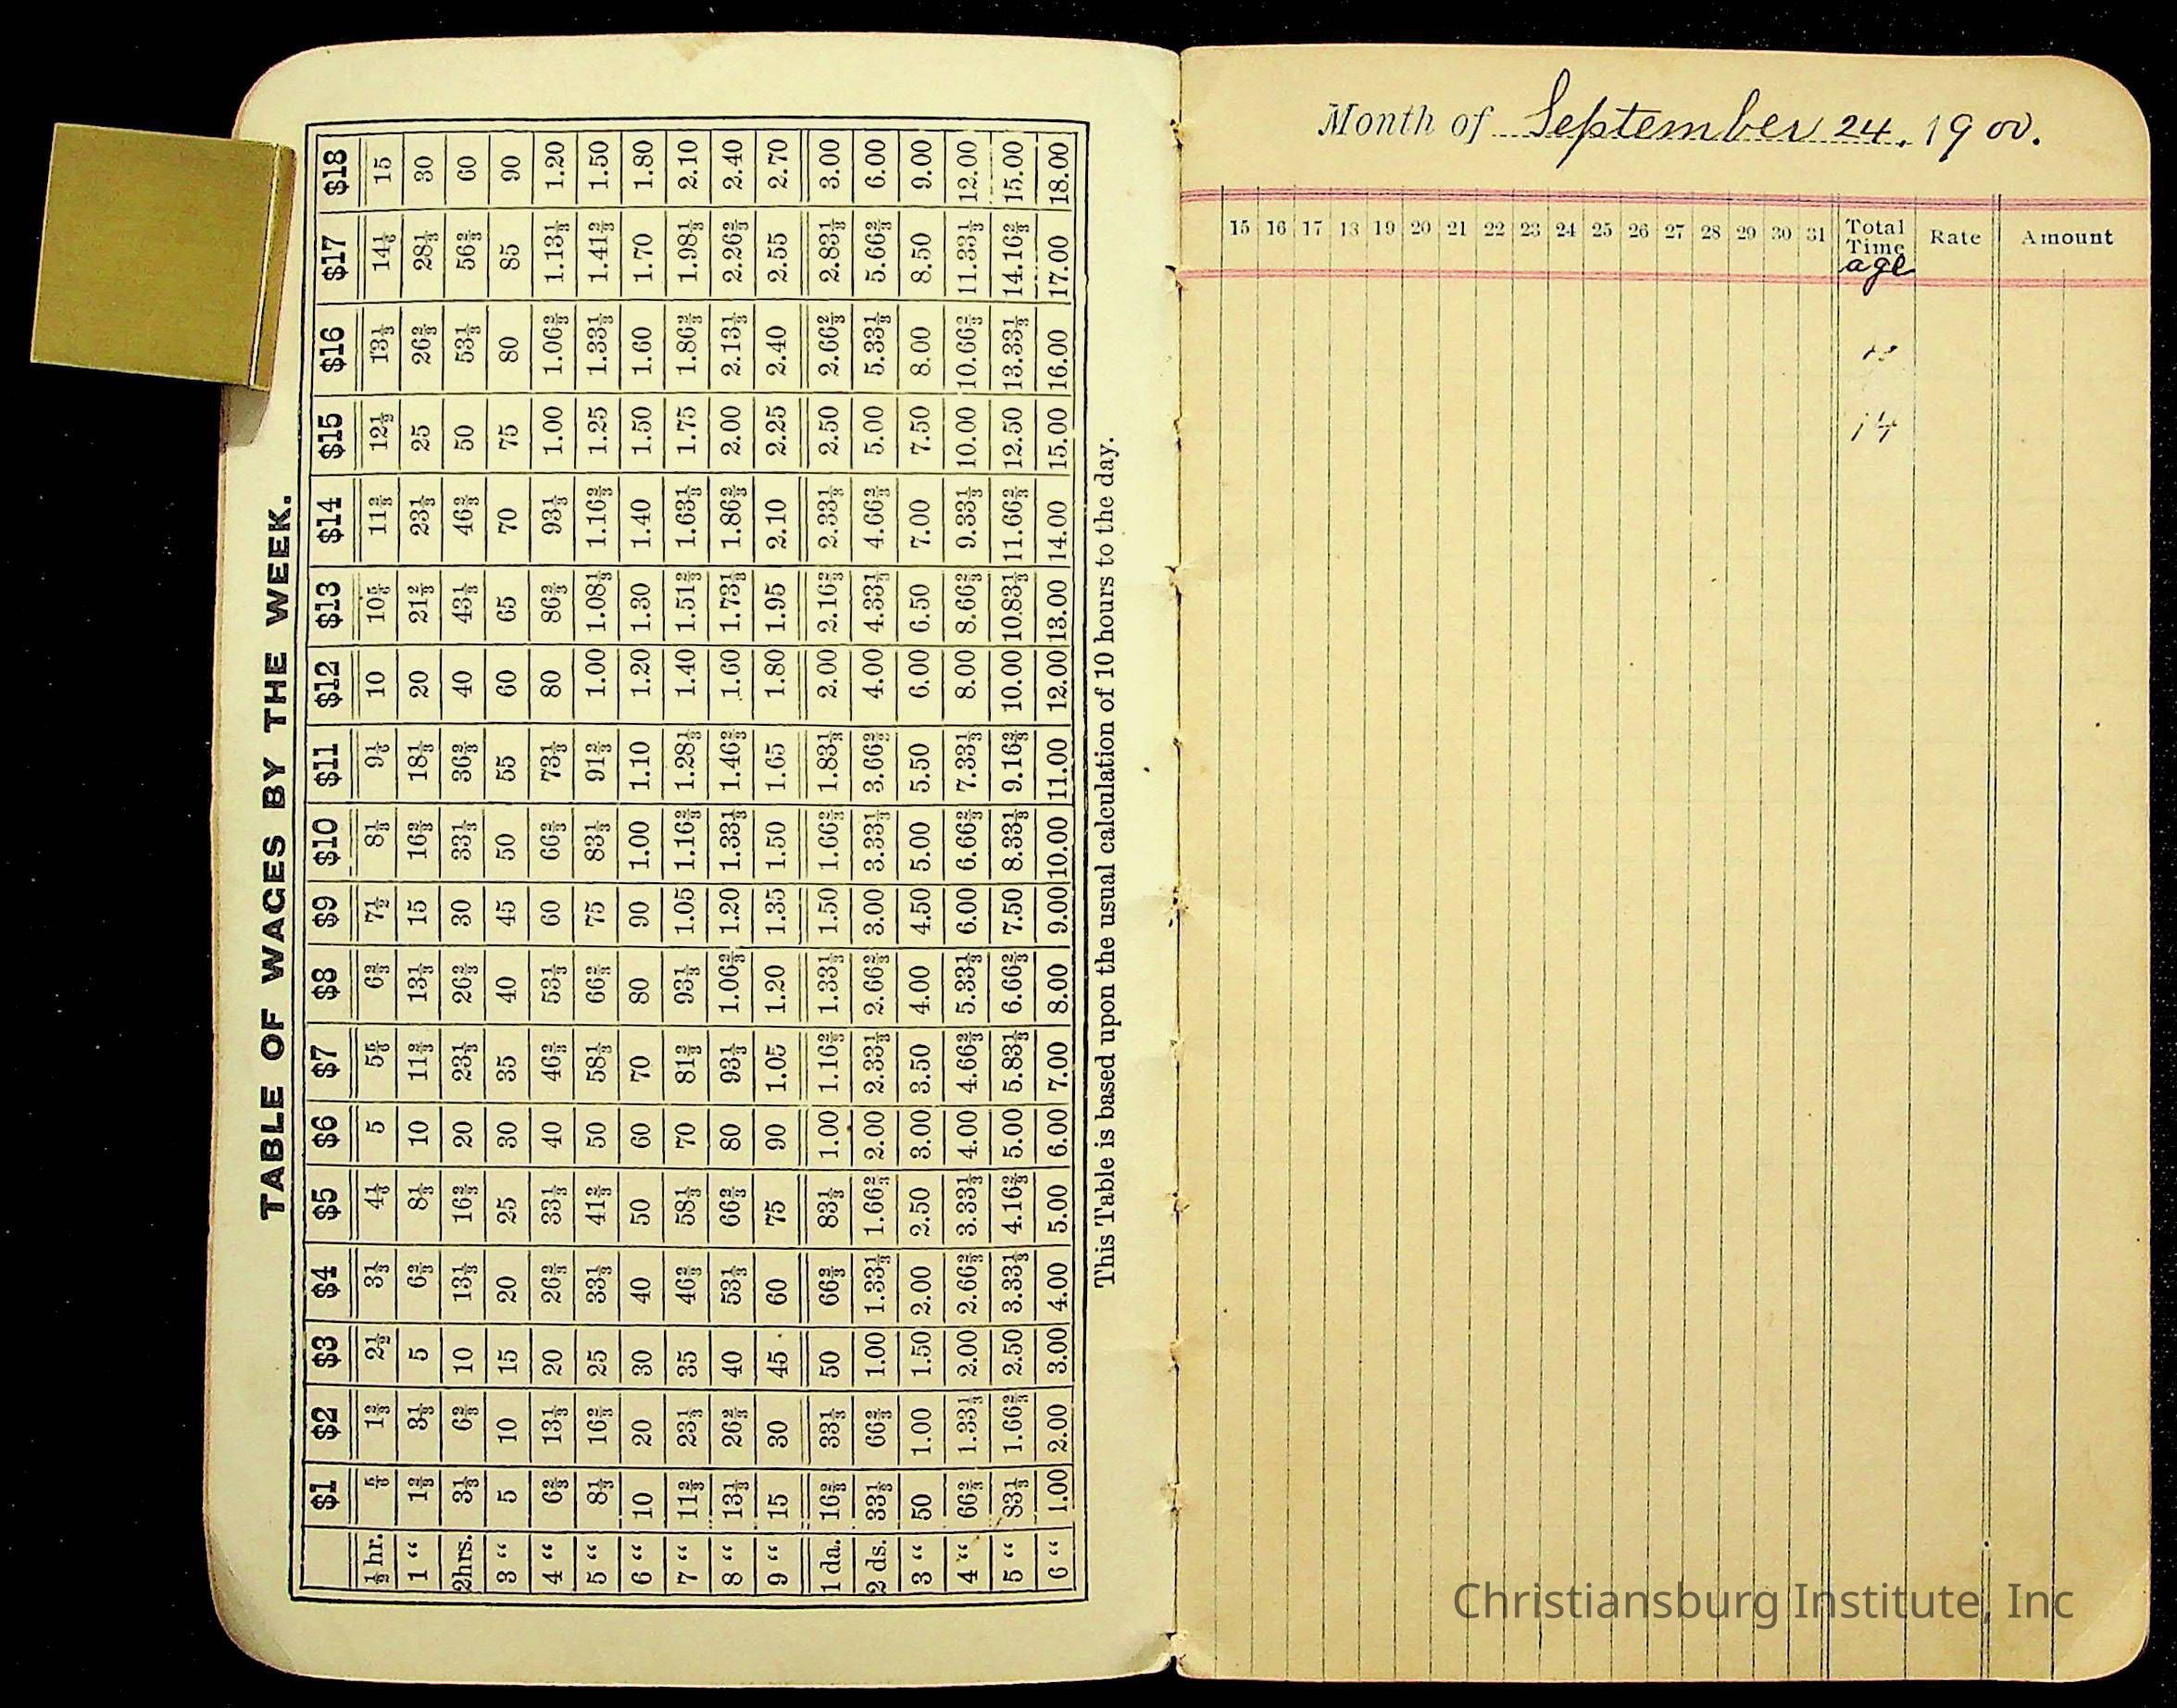 TABLE OF WAGES BY THE WEEK.
$1 $2 $3 $4 $5 $6 $7 $8 $9 $10 $11 $12 $13 $14 $15 $16 $17 $18
½ hr. ⅚ 1⅔ 2½ 3⅓ 4⅙ 5 5⅚ 6⅔ 7½ 8⅓ 9⅙ 10 10⅚ 11⅔ 12½ 13⅓ 14⅙ 15
1 “ 1⅔ 3⅓ 5 6⅔ 8⅓ 10 11⅔ 13⅓ 15 16⅔ 18⅓ 20 21⅔ 23⅓ 25 26⅔ 28⅓ 30
2hrs. 3⅓ 6⅔ 10 13⅓ 16⅔ 20 23⅓ 26⅔ 30 33⅓ 36⅔ 40 43⅓ 46⅔ 50 53⅓ 56⅔ 60
3 “ 5 10 15 20 25 30 35 40 45 50 55 60 65 70 75 80 85 90
4 “ 6⅔ 13⅓ 20 26⅔ 33⅓ 40 46⅔ 53⅓ 60 66⅔ 73⅓ 80 86⅔ 93⅓ 1.00 1.06⅔ 1.13⅓ 1.20
5 “ 8⅓ 16⅔ 25 33⅓ 41⅔ 50 58⅓ 66⅔ 75 83⅓ 91⅔ 1.00 1.08⅓ 1.16⅔ 1.25 1.33⅓ 1.41⅔ 1.50
6 “ 10 20 30 40 50 60 70 80 90 1.00 1.10 1.20 1.30 1.40 1.50 1.60 1.70 1.80
7 “ 11⅔ 23⅓ 35 46⅔ 58⅓ 70 81⅔ 93⅓ 1.05 1.16⅔ 1.28⅓ 1.40 1.51⅔ 1.63⅓ 1.75 1.86⅔ 1.98⅓ 2.10
8 “ 13⅓ 26⅔ 40 53⅓ 66⅔ 80 93⅓ 1.06⅔ 1.20 1.33⅓ 1.46⅔ 1.60 1.73⅓ 1.86⅔ 2.00 2.13⅓ 2.26⅔ 2.40
9 “ 15 30 45 60 75 90 1.05 1.20 1.35 1.50 1.65 1.80 1.95 2.10 2.25 2.40 2.55 2.70
1 da. 16⅔ 33⅓ 50 66⅔ 83⅓ 1.00 1.16⅔ 1.33⅓ 1.50 1.66⅔ 1.83⅓ 2.00 2.16⅔ 2.33⅓ 2.50 2.66⅔ 2.83⅓ 3.00
2 ds. 33⅓ 66⅔ 1.00 1.33⅓ 1.66⅔ 2.00 2.33⅓ 2.66⅔ 3.00 3.33⅓ 3.66⅔ 4.00 4.33⅓ 4.66⅔ 5.00 5.33⅓ 5.66⅔ 6.00
3 “ 50 1.00 1.50 2.00 2.50 3.00 3.50 4.00 4.50 5.00 5.50 6.00 6.50 7.00 7.50 8.00 8.50 9.00
4 “ 66⅔ 1.33⅓ 2.00 2.66⅔ 3.33⅓ 4.00 4.66⅔ 5.33⅓ 6.00 6.66⅔ 7.33⅓ 8.00 8.66⅔ 9.33⅓ 10.00 10.66⅔ 11.33⅓ 12.00
5 “ 83⅓ 1.66⅔ 2.50 3.33⅓ 4.16⅔ 5.00 5.83⅓ 6.66⅔ 7.50 8.33⅓ 9.16⅔ 10.00 10.83⅓ 11.66⅔ 12.50 13.33⅓ 14.16⅔ 15.00
6 “ 1.00 2.00 3.00 4.00 5.00 6.00 7.00 8.00 9.00 10.00 11.00 12.00 13.00 14.00 15.00 16.00 17.00 18.00
This Table is based upon the usual calculation of 10 hours to the day.
Month of September 24, 1900.
15 16 17 18 19 20 21 22 23 24 25 26 27 28 29 30 31 Total Time Rate Amount
age
14
Christiansburg Institute, Inc